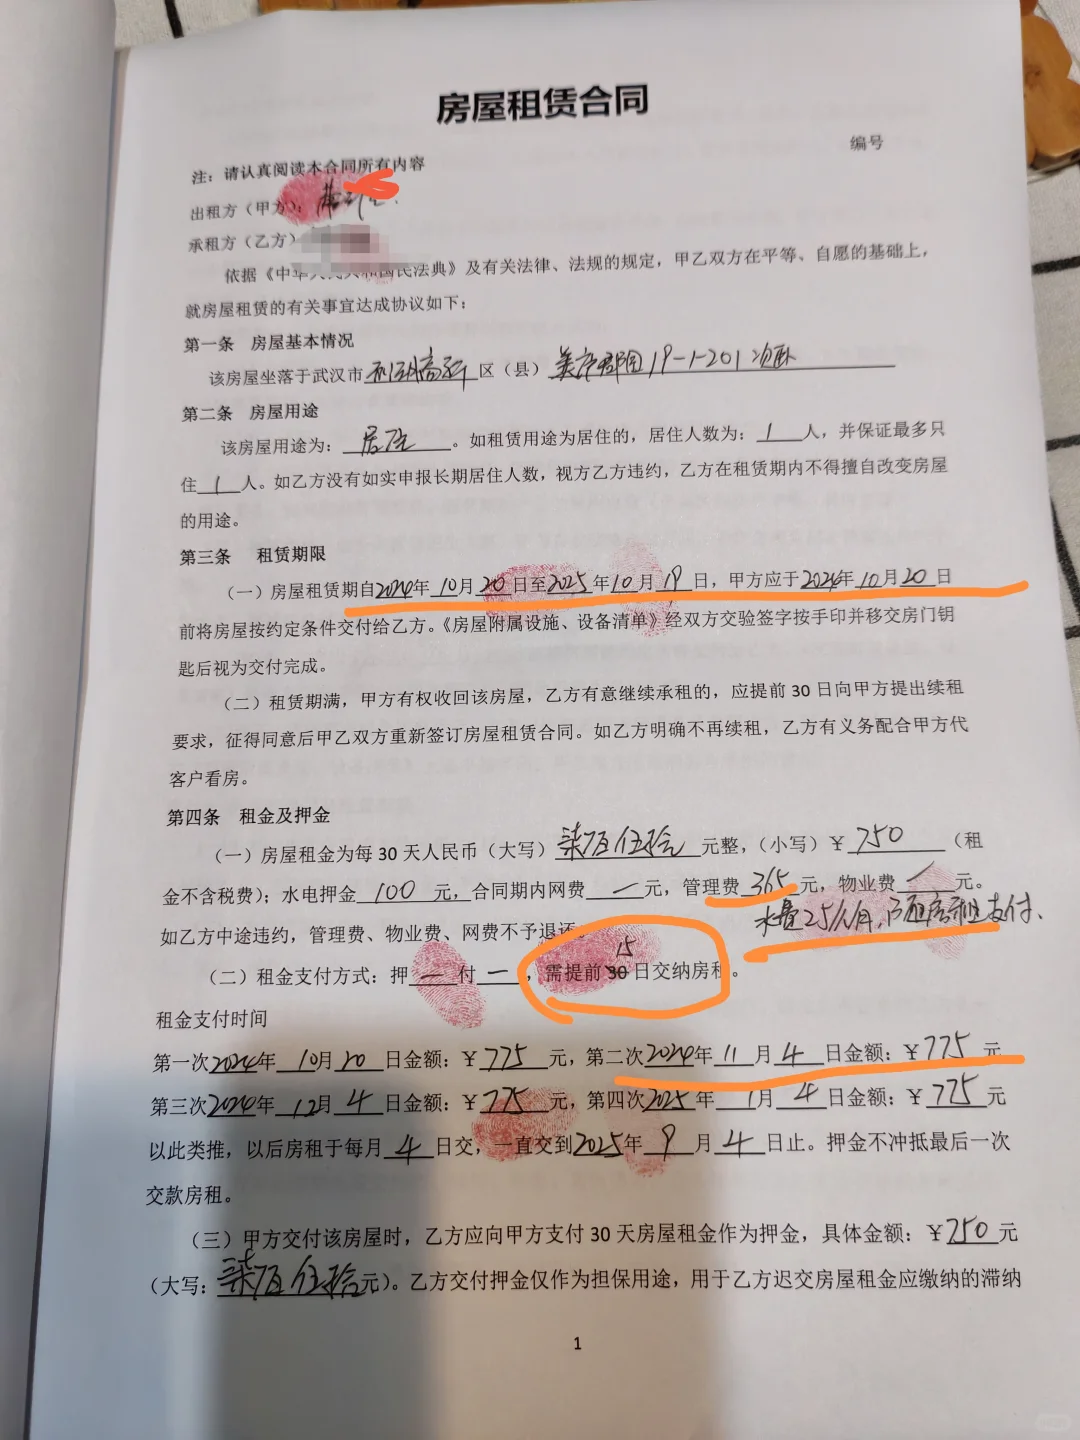 房屋租赁合同
编号
注：请认真阅读本合同所有内容
出租方（甲方）：
承租方（乙方）
依据《中华人民共和国民法典》及有关法律、法规的规定，甲乙双方在平等、自愿的基础上，
就房屋租赁的有关事宜达成协议如下：
第一条　房屋基本情况
该房屋坐落于武汉市 东湖高新 区（县） 美庐郡园19-1-201次卧
第二条　房屋用途
该房屋用途为： 居住 。如租赁用途为居住的，居住人数为： 1 人，并保证最多只
住 1 人。如乙方没有如实申报长期居住人数，视方乙方违约，乙方在租赁期内不得擅自改变房屋
的用途。
第三条　租赁期限
（一）房屋租赁期自2024年 10月 20 日至2025 年10 月 19 日，甲方应于2024年 10月20 日
前将房屋按约定条件交付给乙方。《房屋附属设施、设备清单》经双方交验签字按手印并移交房门钥
匙后视为交付完成。
（二）租赁期满，甲方有权收回该房屋，乙方有意继续承租的，应提前 30 日向甲方提出续租
要求，征得同意后甲乙双方重新签订房屋租赁合同。如乙方明确不再续租，乙方有义务配合甲方代
客户看房。
第四条　租金及押金
（一）房屋租金为每 30 天人民币（大写） 柒佰伍拾 元整，（小写）￥ 750 （租
金不含税费）；水电押金 100 元，合同期内网费 一 元，管理费 365 元，物业费 / 元。
水费25/人/月，随房租支付、
如乙方中途违约，管理费、物业费、网费不予退还。
15
（二）租金支付方式：押 一 付 一 ，需提前 30 日交纳房租。
租金支付时间
第一次2024年 10月20 日金额：￥ 775 元，第二次2024年 11 月 4 日金额：￥775 元
第三次2024年 12月 4 日金额：￥ 775 元，第四次2025 年 1月 4 日金额：￥ 775 元
以此类推，以后房租于每月 4 日交，一直交到2025年 9 月 4 日止。押金不冲抵最后一次
交款房租。
（三）甲方交付该房屋时，乙方应向甲方支付 30 天房屋租金作为押金，具体金额：￥750 元
（大写：柒佰伍拾元）。乙方交付押金仅作为担保用途，用于乙方迟交房屋租金应缴纳的滞纳
1